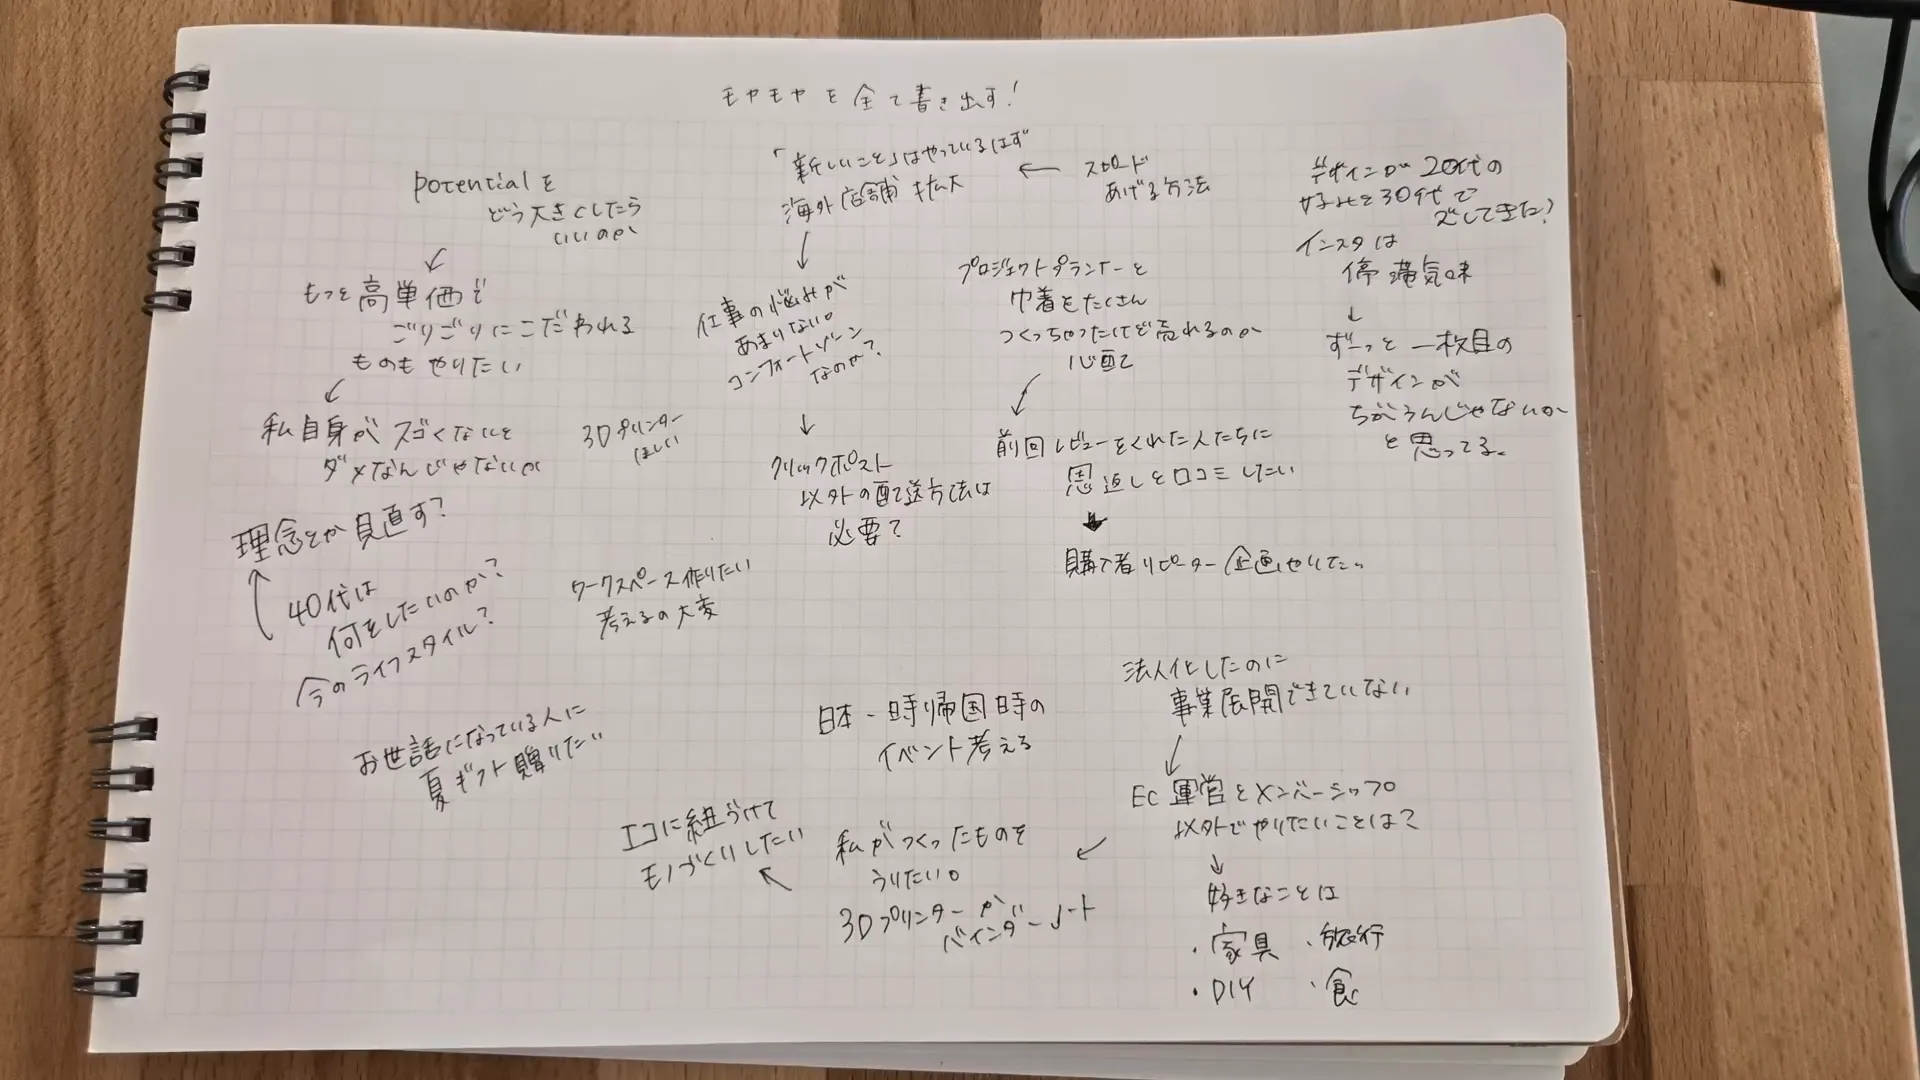 モヤモヤを全て書き出す!
potentialを
どう大きくしたら
いいのか
もっと高単価で
ごりごりにこだわれる
ものもやりたい
私自身がスゴくないと
ダメなんじゃないか
理念とか見直す?
40代は
何をしたいのか?
今のライフスタイル?
お世話になっている人に
夏ギフト贈りたい
「新しいこと」はやっているはず
海外店舗拡大
スピード
あげる方法
仕事の悩みが
あまりない。
コンフォートゾーン
なのか?
3Dプリンター
ほしい
クリックポスト
以外の配送方法は
必要?
ワークスペース作りたい
考えるの大変
プロジェクトプランナーと
巾着をたくさん
つくっちゃったけど売れるのか
心配
前回レビューをくれた人たちに
恩返しと口コミしたい
購入者リピーター企画やりたい
デザインが20代の
好みと30代で
ズレてきた?
インスタは
停滞気味
ずーっと一枚目の
デザインが
ちがうんじゃないか
と思ってる。
日本一時帰国時の
イベント考える
法人化したのに
事業展開できていない
EC運営とメンバーシップ
以外でやりたいことは?
好きなことは
・家具 ・旅行
・DIY ・食
私がつくったものを
うりたい。
3Dプリンターか
バインダーノート
エコに紐づけて
モノづくりしたい